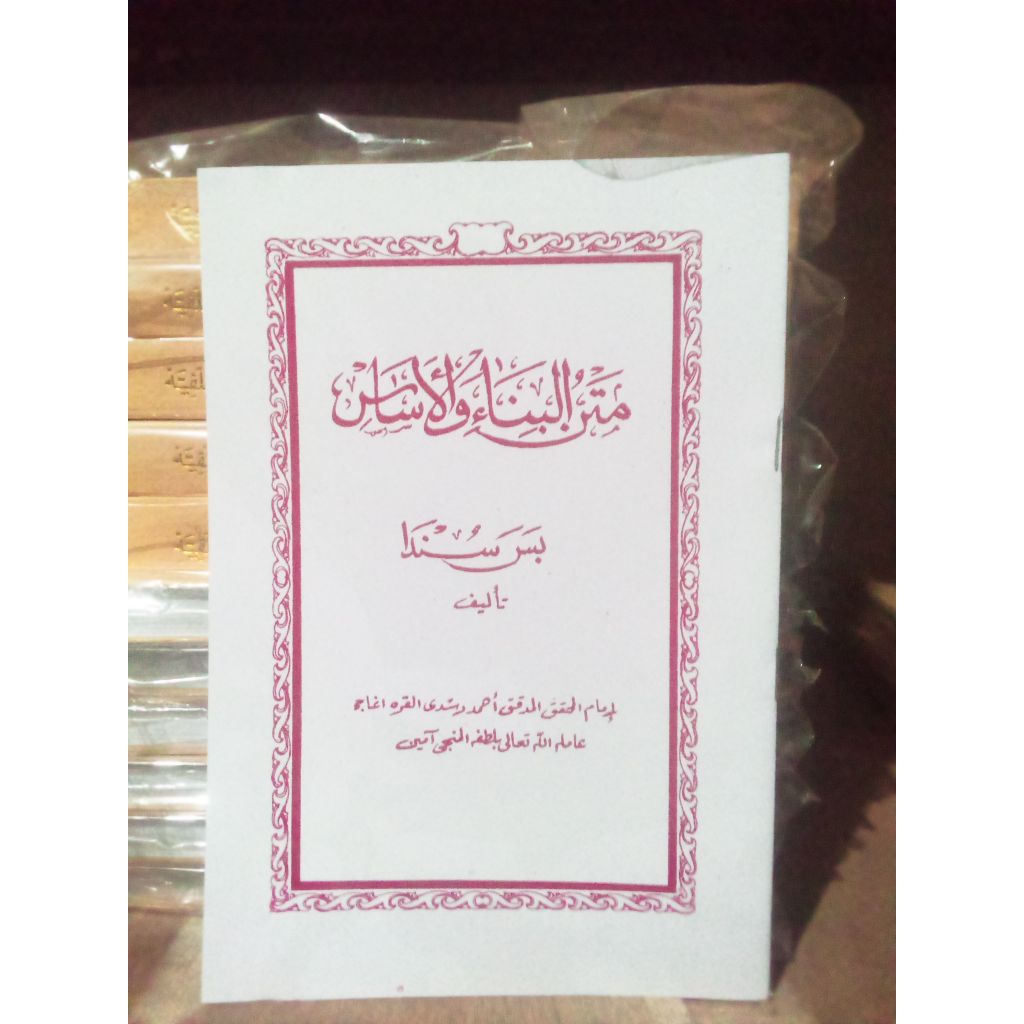 مَتْنُ الْبِنَاءِ وَالْأَسَاسِ
بَسَ سُنْدَا
تأليف
لإمام المحقق المدقق أحمد رشدى القره اغاجى
عامله الله تعالى بلطفه المنجى آمين